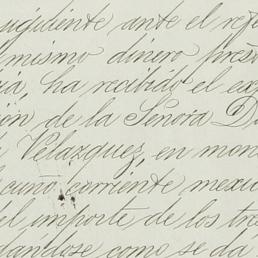 sufidente ante el refe
mismo dinero preso
ia, ha recibido el exp
ión de la Señora D
Velazquez, en mon
cuño corriente mexic
el importe de los tres
dándose como se da